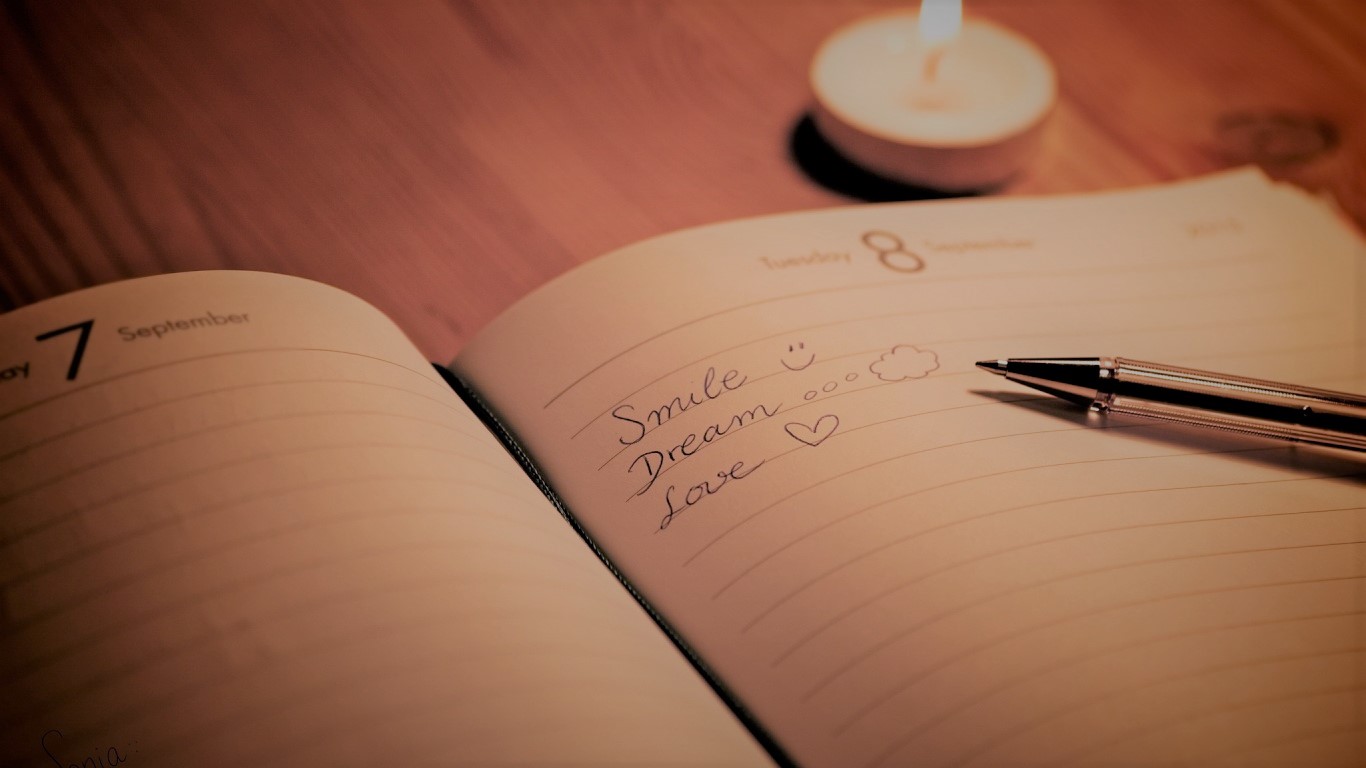 7 September
Tuesday 8 September
Smile
Dream ...
Love
Sonia